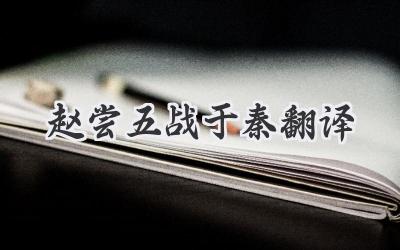 赵尝五战于秦翻译